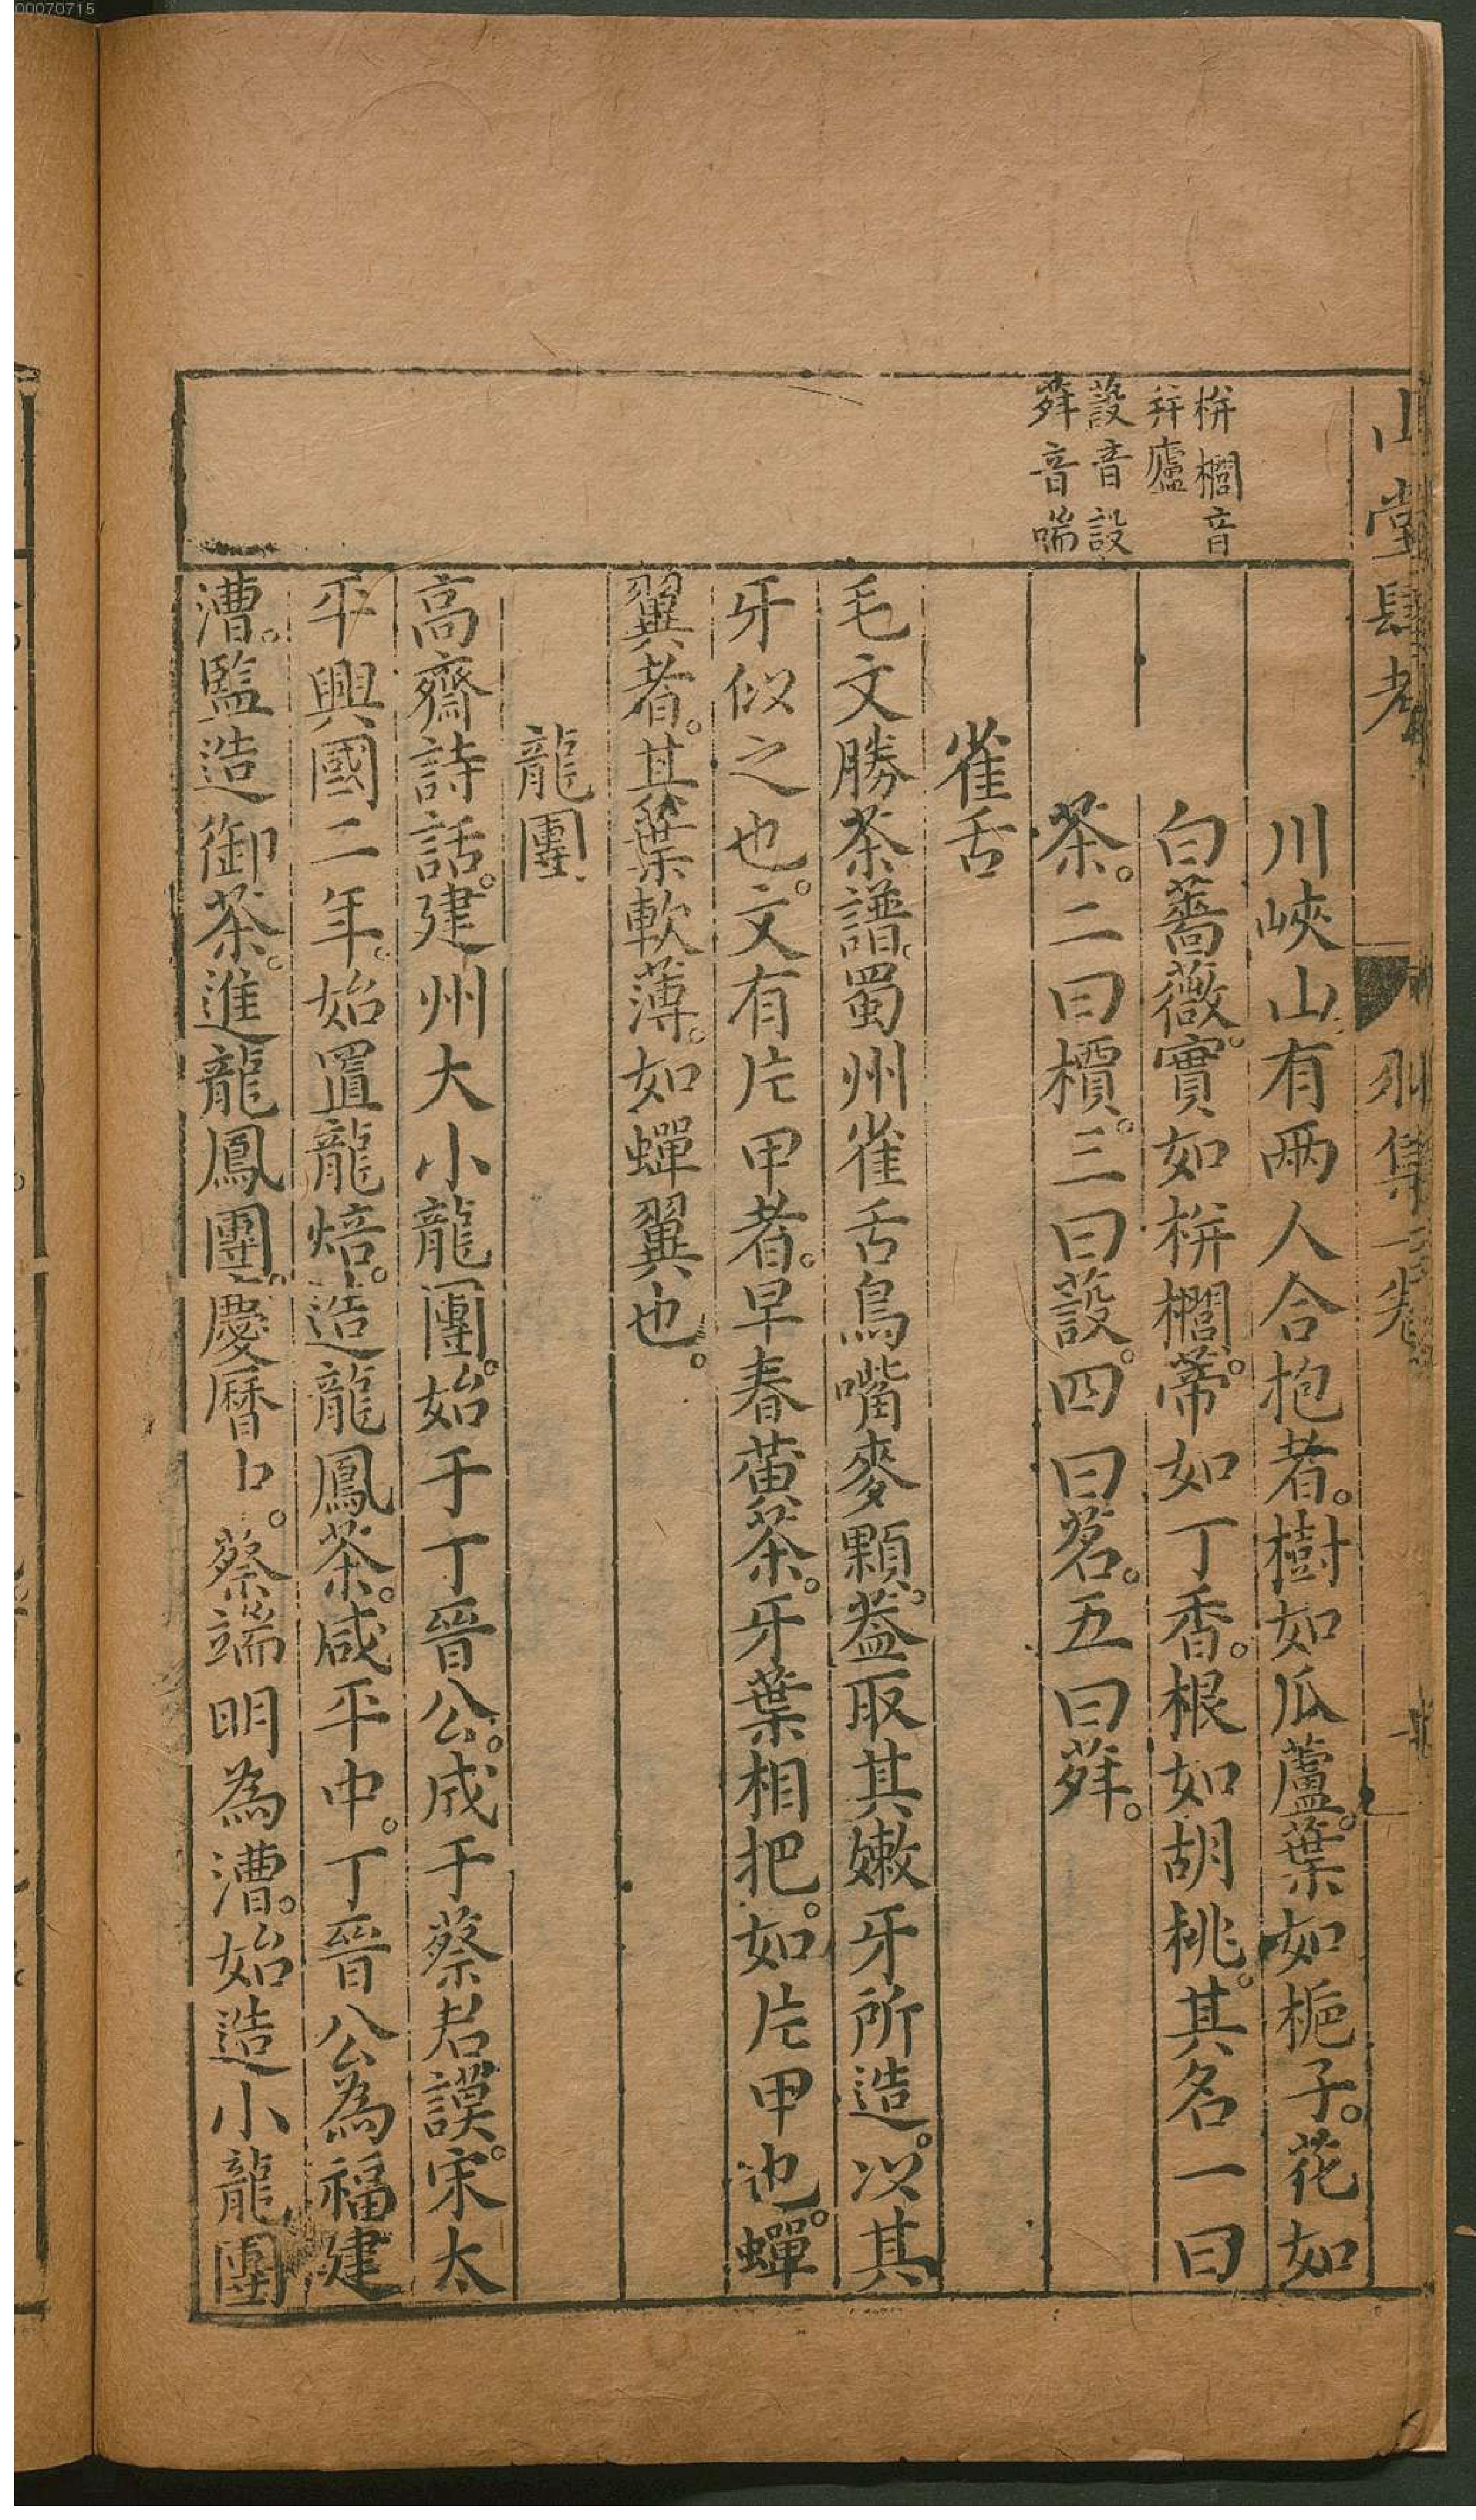 00070715
山堂肆考
別集二卷
栟櫚音
栟廬
蔎音設
荈音喘
川峽山有兩人合抱者。樹如瓜蘆。葉如梔子。花如
白薔薇。實如栟櫚。蒂如丁香。根如胡桃。其名一曰
茶。二曰檟。三曰蔎。四曰茗。五曰荈。
雀舌
毛文勝茶譜。蜀州雀舌鳥嘴麥顆。葢取其嫩牙所造。以其
牙似之也。文有片甲者。早春黃茶。牙葉相把。如片甲也。蟬
翼者。其葉軟薄。如蟬翼也。
龍團
高齋詩話。建州大小龍團。始于丁晉公。成于蔡君謨。宋太
平興國二年。始置龍焙。造龍鳳茶。咸平中。丁晉公為福建
漕。監造御茶。進龍鳳團。慶曆中。蔡端明為漕。始造小龍團